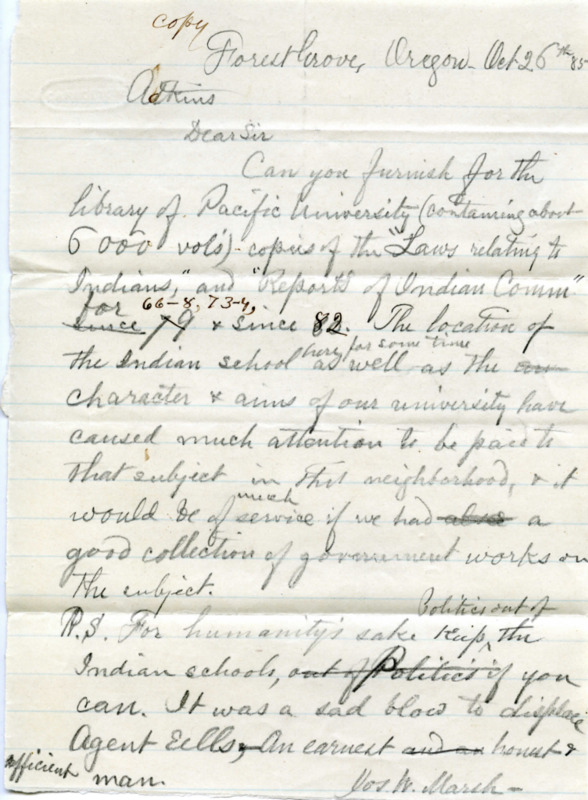 copy
Forest Grove, Oregon - Oct 26th 85
Adkins
Dear Sir
Can you furnish for the
library of Pacific University (containing about
6000 vols) - copies of the "Laws relating to
Indians," and "Reports of Indian Comm"
for 66-8, 73-4,
since 79 & since 82. The location of
here for some time
the Indian school as well as the an
character & aims of our university have
caused much attention to be paid to
that subject in this neighborhood, & it
much
would be of service if we had also a
good collection of government works on
the subject.
Politics out of
P.S. For humanity's sake keep the
Indian schools, out of Politics if you
can. It was a sad blow to displace
Agent Eells, An earnest and an honest &
efficient man.
Jos W. Marsh -